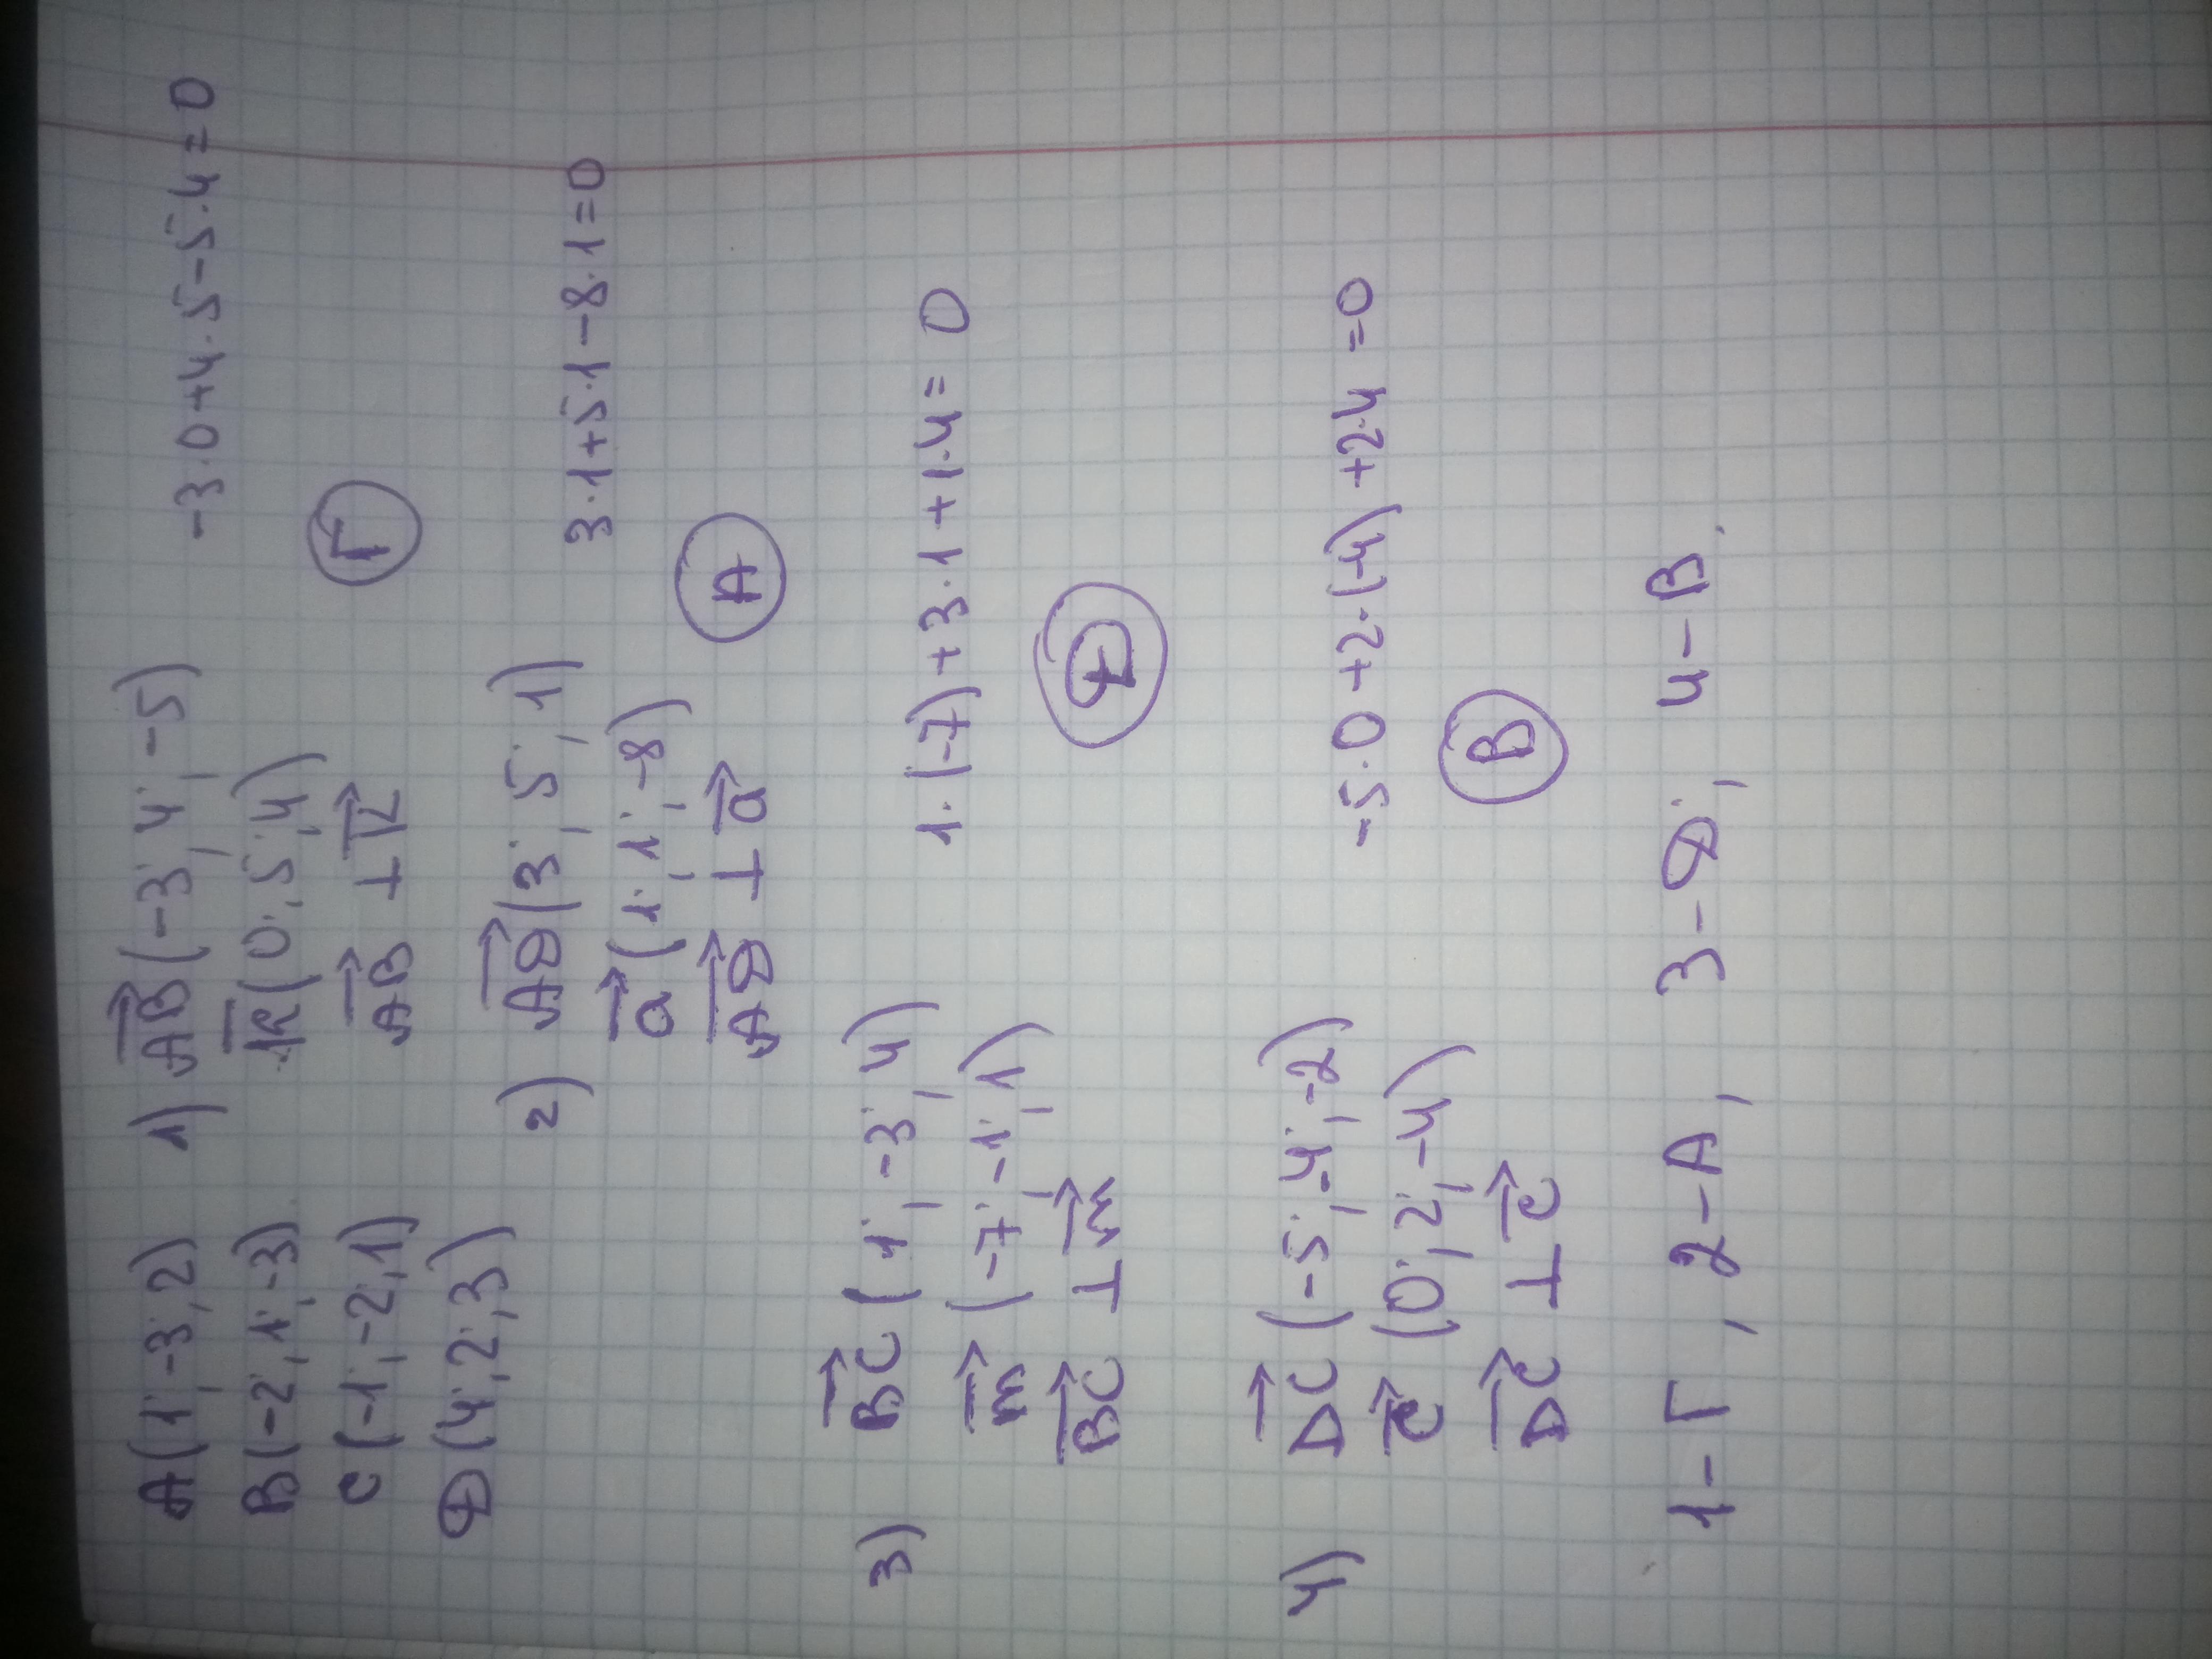 A(1; -3; 2)
B(-2; 1; -3)
C(-1; -2; 1)
D(4; 2; 3)
1) AB(-3; 4; -5)
k(0; 5; 4)
AB ⊥ k
-3·0+4·5-5·4=0
Г
2) AD(3; 5; 1)
a(1; 1; -8)
AD ⊥ a
3·1+5·1-8·1=0
А
3) BC(1; -3; 4)
m(-7; -1; 1)
BC ⊥ m
1·(-7)+3·1+1·4=0
Д
4) DC(-5; -4; -2)
c(0; 2; -4)
DC ⊥ c
-5·0+2·(-4)+2·4=0
В
1-Г, 2-А, 3-Д; 4-В.